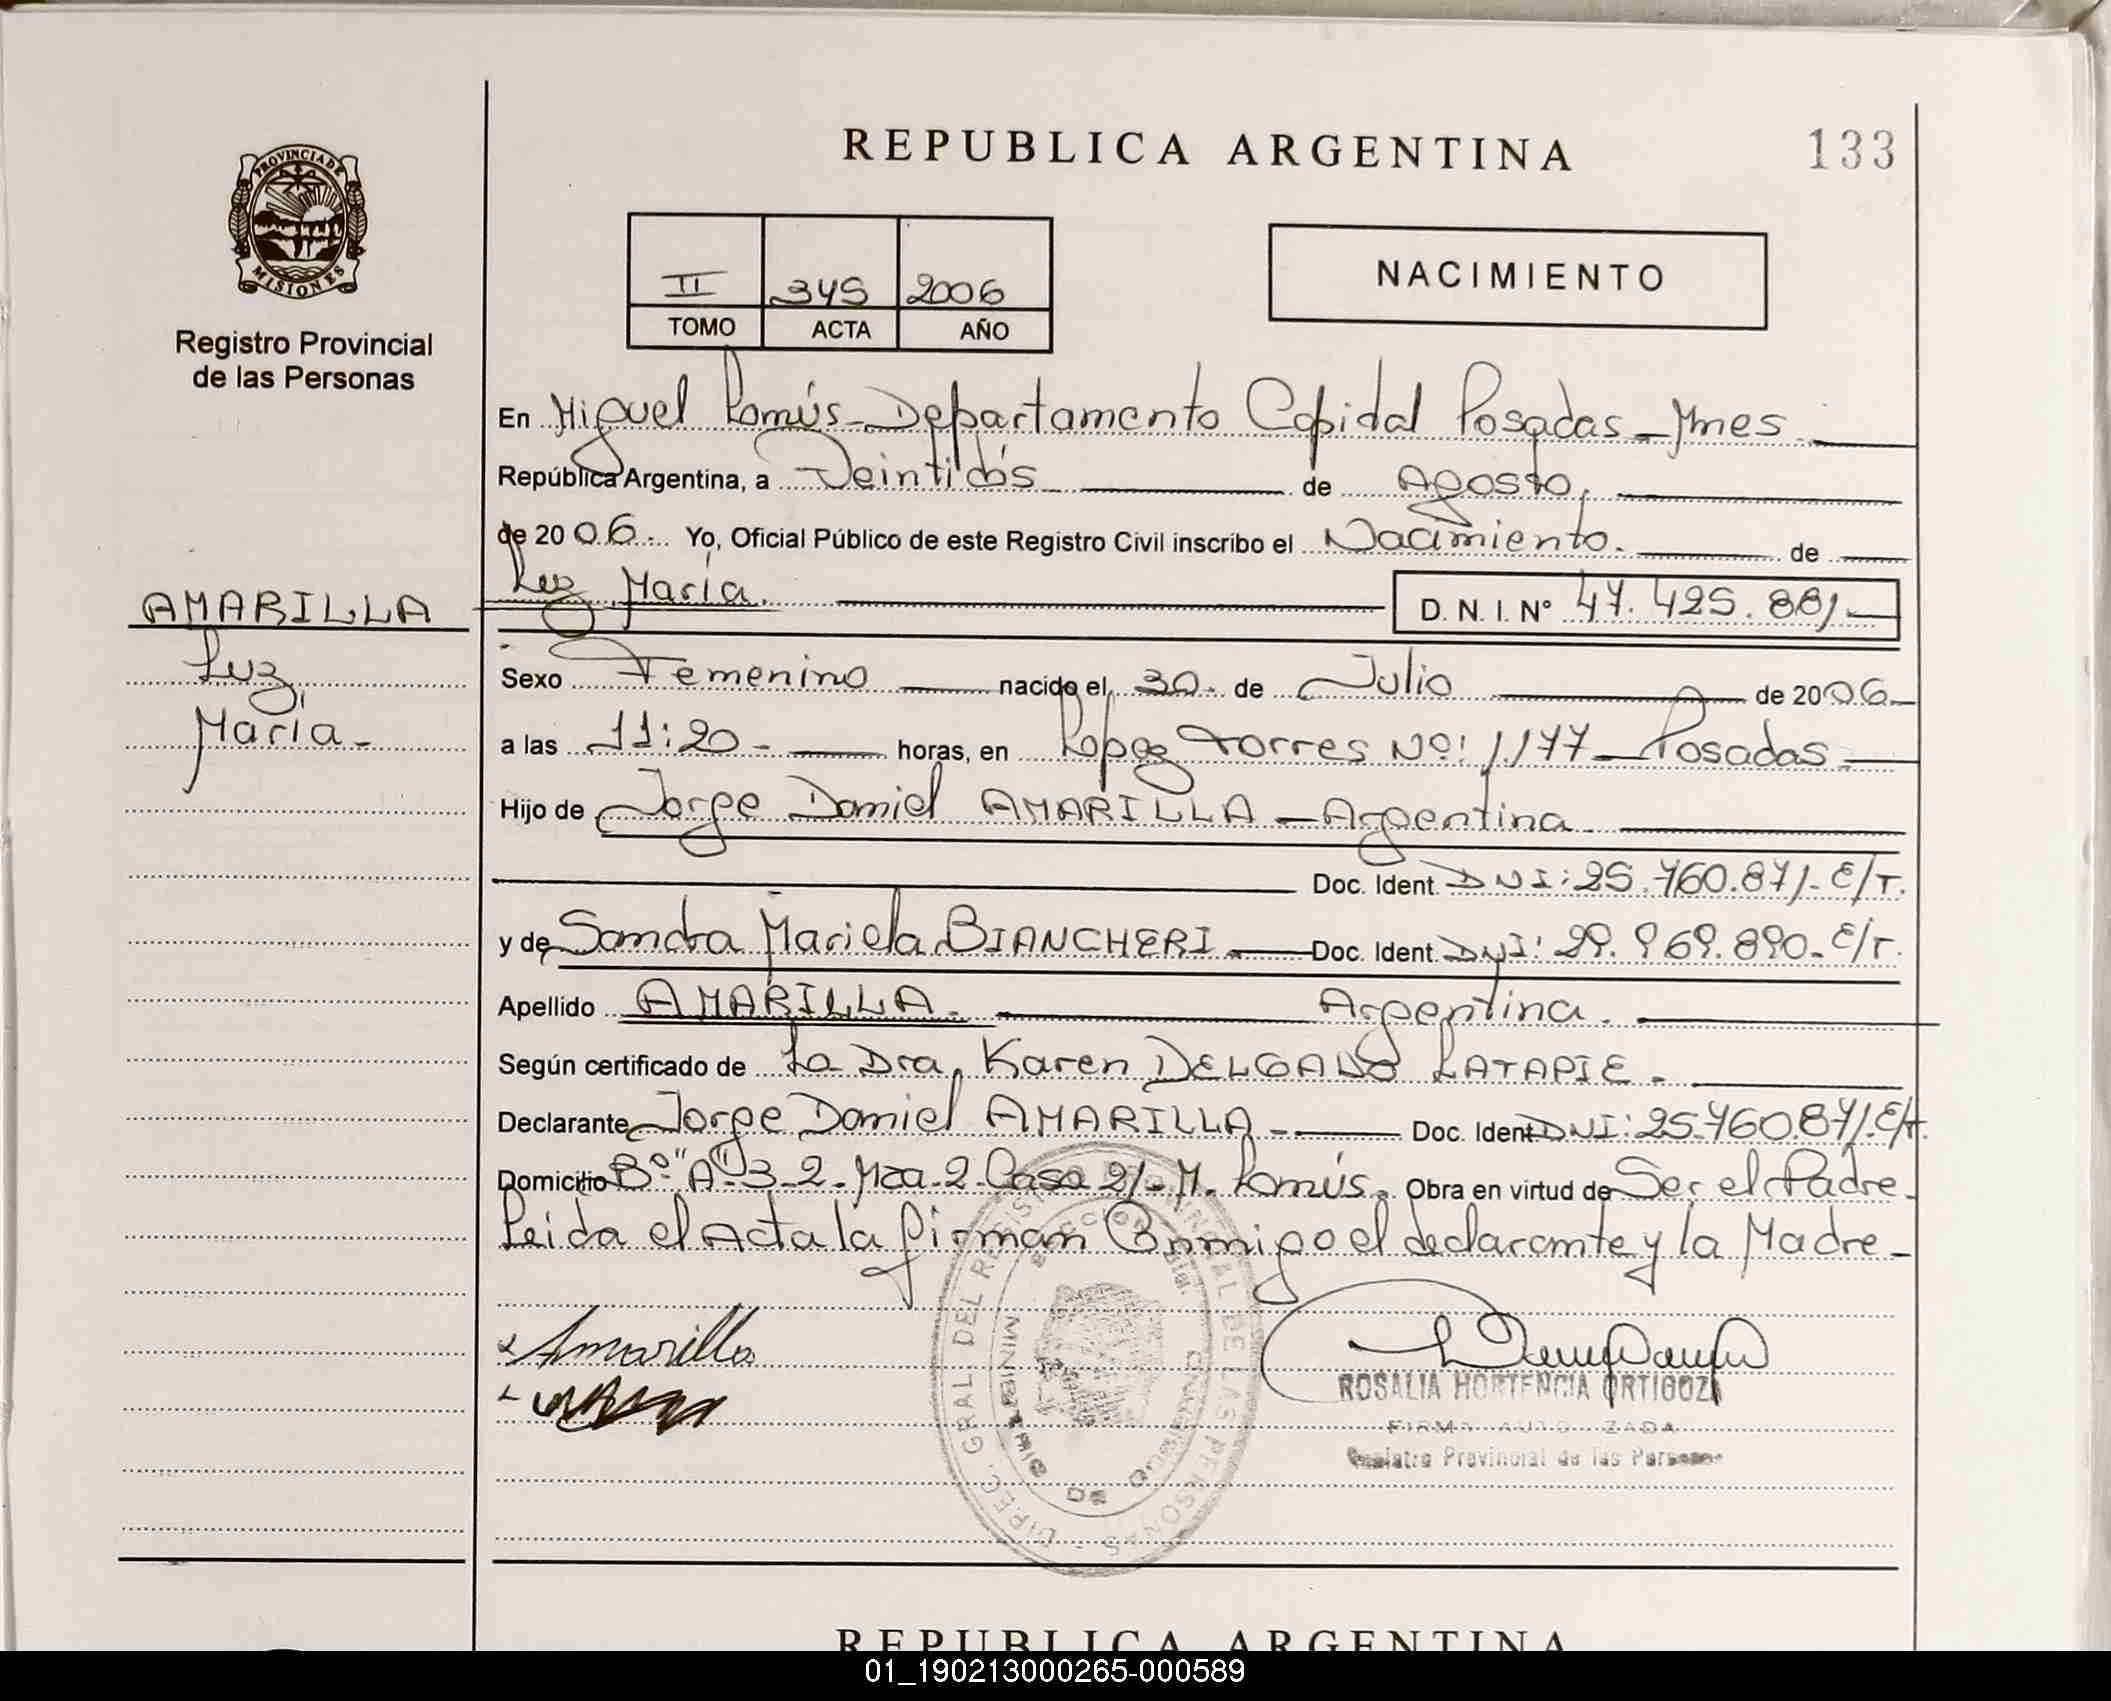 REPUBLICA ARGENTINA
133
PROVINCIA DE
MISIONES
Registro Provincial
de las Personas
II 345 2006
TOMO ACTA AÑO
NACIMIENTO
En Miguel Lanús - Departamento Capital Posadas - Mnes.
República Argentina, a Veintidós de Agosto,
de 2006. Yo, Oficial Público de este Registro Civil inscribo el Nacimiento. de
Luz María. D. N. I. N° 47.425.881.-
AMARILLA
Luz,
María.-
Sexo Femenino nacido el 30. de Julio de 2006.-
a las 11:20.- horas, en Lopez Torres No: 1.177 - Posadas.-
Hijo de Jorge Daniel AMARILLA - Argentina.
Doc. Ident. DNI: 25.760.871.- E/T.
y de Sandra Mariela BIANCHERI.- Doc. Ident. DNI: 29.969.890.- E/T.
Apellido AMARILLA. Argentina.
Según certificado de La Dra. Karen DELGADO LATAPIE.
Declarante Jorge Daniel AMARILLA.- Doc. Ident DNI: 25.760.871. E/T.
Domicilio Bº "A" 3-2. Mza. 2. Casa 21.- M. Lanús. Obra en virtud de Ser el Padre.
Leida el Acta la firman Conmigo el declarante y la Madre-
Amarilla
ROSALIA HORTENCIA ORTIGOZA
FIRMA AUTORIZADA
Registro Provincial de las Personas
DIREC. GRAL. DEL REGISTRO PROVINCIAL DE LAS PERSONAS
REPUBLICA ARGENTINA
01_190213000265-000589